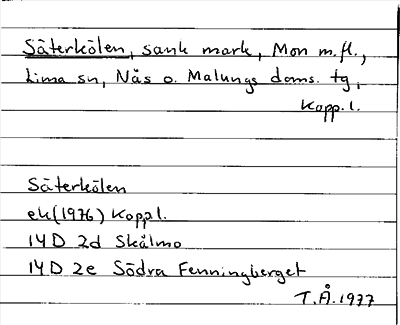 Säterkölen, sank mark, Mon m.fl.,
Lima sn, Näs o. Malungs doms. tg,
Kopp. l.
Säterkölen
ek (1976) Koppl.
14D 2d Skålmo
14D 2e Södra Fenningberget
T.Å. 1977